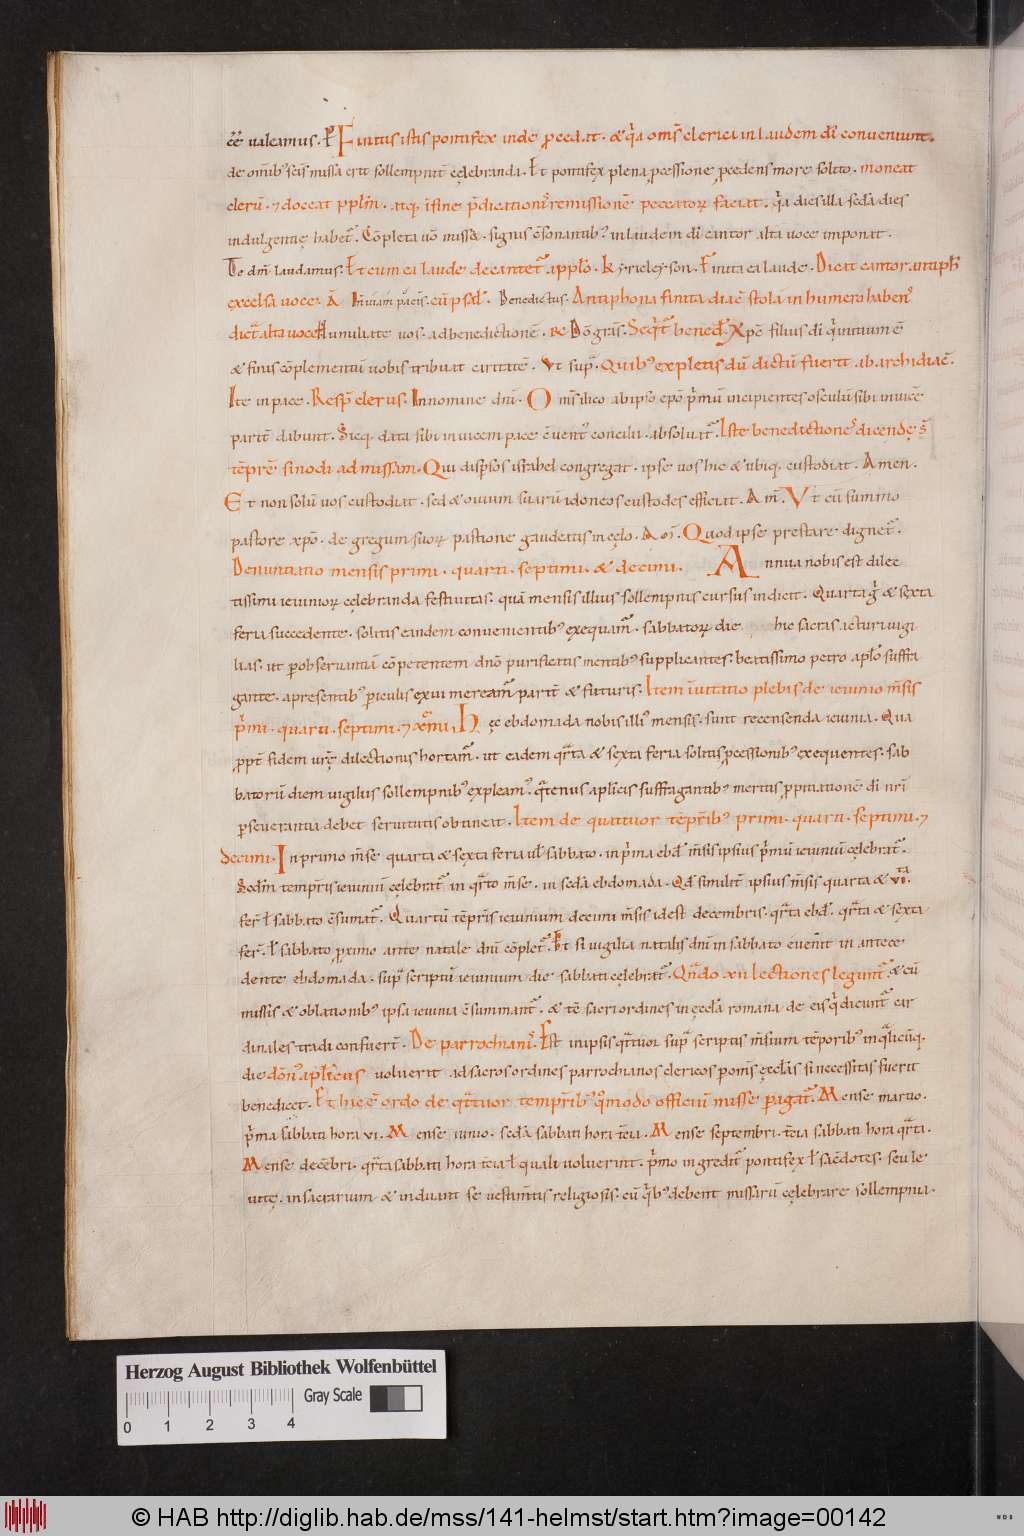 ēē ualeamus. P̄ Finitis istis pontifex inde ꝓcedat. & qͥa om̄s clerici in laudem dī conueniunt.
de omībꝰ scīs missa erit sollempnit̄ cęlebranda. Et pontifex plena ꝓcessione ꝓcedens more solito. moneat
clerū. ⁊ doceat pplm̄. atq; ī fine p̄dicationiͣ remissionē peccatoꝝ faciat. qͥa dies illa sedā dies
indulgentię habet᷑. Cōpleta uō missa. signis cōsonantibꝰ. in laudem dī cantor alta uoce imponat.
Te dm̄ laudamus. Et cum ea laude decantet᷑ a pplō. Kyrieleyson. Finita ea laude. Dicat cantor antiph̄
excelsa uoce. A In uiam pacis. cū psal̄. Benedictus. Antiphona finita diac̄ stola in humero habens
dicit̄ alta uoce Humiliate uos. ad benedictionē. R̄ Dō grās. Seqͥt᷑ bened̄. Xpē filius dī qͥ initium ē
& finis cōplementū uobis tribuat caritatē. Vt supͣ. Quibꝰ expletis dū dictū fuerit ab archidiac̄.
Ite in pace. Resp̄ clerus. In nomine dnī. O m̄s ilico ab ipso epō p̄mū incipientes osculū sibi inuicē
parit̄ dabunt. Sicq; data sibi inuicem pace cōuentꝰ concilii absoluat᷑. Iste benedictiones dicendę s̄
tēpre sinodi ad missam. Qui disp̄sos israhel congregat. ipse uos hic & ubiq; custodiat. Amen.
Et non solū uos custodiat. sed & ouium suarū idoneos custodes efficiat. Am̄. Vt cū summo
pastore xpō. de gregum suoꝝ pastione gaudeatis in cęlo. Am̄. Quod ipse prestare dignet᷑.
Denuntiatio mensis primi. quarti. septimi. & decimi. Annua nobis est dilec
tissimi ieiunioꝝ cęlebranda festiuitas. quā mensis illius sollempnis cursus indicit. Quarta gͥ & sexta
feria succedente. solitis eandem conuenientibꝰ exequam̄. sabbatoꝝ die hic sacras acturi uigi
lias. ut p obseruantiā cōpetentem dnō purificatis mentibꝰ supplicantes. beatissimo petro aplō suffra
gante. a presentibꝰ piculis exui meream̄ parit̄ & futuris. Item inuitatio plebis de ieiunio m̄sis
pͥmi. quarti. septimi. ⁊ xͫmi. Hęc ebdomada nobis illiꝰ mensis. sunt recensenda ieiunia. Qua
ꝓpt̄ fidem urę dilectionis hortam̄. ut eadem qͬta & sexta feria solitis ꝓcessionibꝰ exequentes. sab
batorū diem uigiliis sollempnibꝰ expleam̄. qͣtenus aplicis suffragantibꝰ meritis ꝓpitiationē dī nrī
pseuerantia debet seruitutis obtineat. Item de quattuor tēpribꝰ primi. quarti. septimi. ⁊
decimi. In primo m̄se quarta & sexta feria ul̄ sabbato. in pͥma ebd̄ m̄sis ipsius pͥmū ieiuniū cęlebrat᷑.
Secdm̄ tempris ieiuniū cęlebrat᷑ in qͬto m̄se. in secdā ebdomada. Qd̄ similit̄ ipsius m̄sis quarta & viͭᵃ.
fer̄. l̄ sabbato cōsumat᷑. Quartū tēpris ieiunium decimi m̄sis idest decembris. qͬta ebd̄. qͬta & sexta
fer̄. l̄ sabbato ꝓximo ante natale dnī cōplet᷑. Et si uigilia natalis dnī in sabbato euenit in antece
dente ebdomada. supͣ scriptū ieiunium die sabbati cęlebrat᷑. Qn̄do xii lectiones legunt᷑. & cū
missis & oblationibꝰ ipsa ieiunia cōsummant᷑. & tē sacri ordines in ęcclā romana de eis qͥ dicunt᷑ car
dinales tradi consuert̄. De parrochianis. Est in ipsis qͣttuor supͣ scriptis m̄sium tēporibꝰ in qͣlicūq;
die dōnꝰ aplicus uoluerit ad sacros ordines parrochianos clericos p om̄s ęcclās si necessitas fuerit
benedicet. Et hic ē ordo de qͣttuor tempribꝰ qͦmodo officiū missę pagat᷑. Mense martio.
pͥma sabbati hora vi. Mense iunio. sedā sabbati hora t̄cia. Mense septembri. t̄cia sabbati hora qͬta.
Mense decēbri. qͬta sabbati hora t̄cia l̄ quali uoluerint. pͥmo ingredit̄ pontifex l̄ sac̄dotes. seu le
uitę. in sacrarium & induunt se uestim̄tis religiosis. cū qͥbꝰ debent missarū cęlebrare sollempnia.
Herzog August Bibliothek Wolfenbüttel
Gray Scale
0 1 2 3 4
© HAB http://diglib.hab.de/mss/141-helmst/start.htm?image=00142